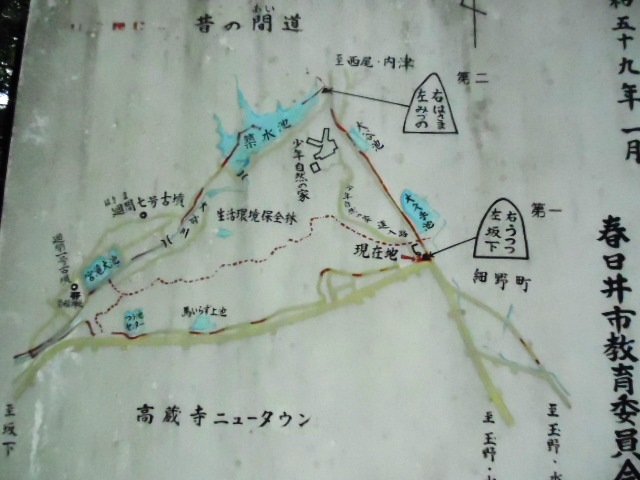 昔の間道
あい
和五十九年一月
春日井市教育委員会
至西尾・内津
第二
右はさま
左みつの
築水池
大谷池
少年自然の家
生活環境保全林
廻間七号古墳
はさま
宮滝大池
大久手池
第一
右うつつ
左坂下
現在地
細野町
馬いらず上池
高蔵寺ニュータウン
至坂下
至玉野・
至玉野・水